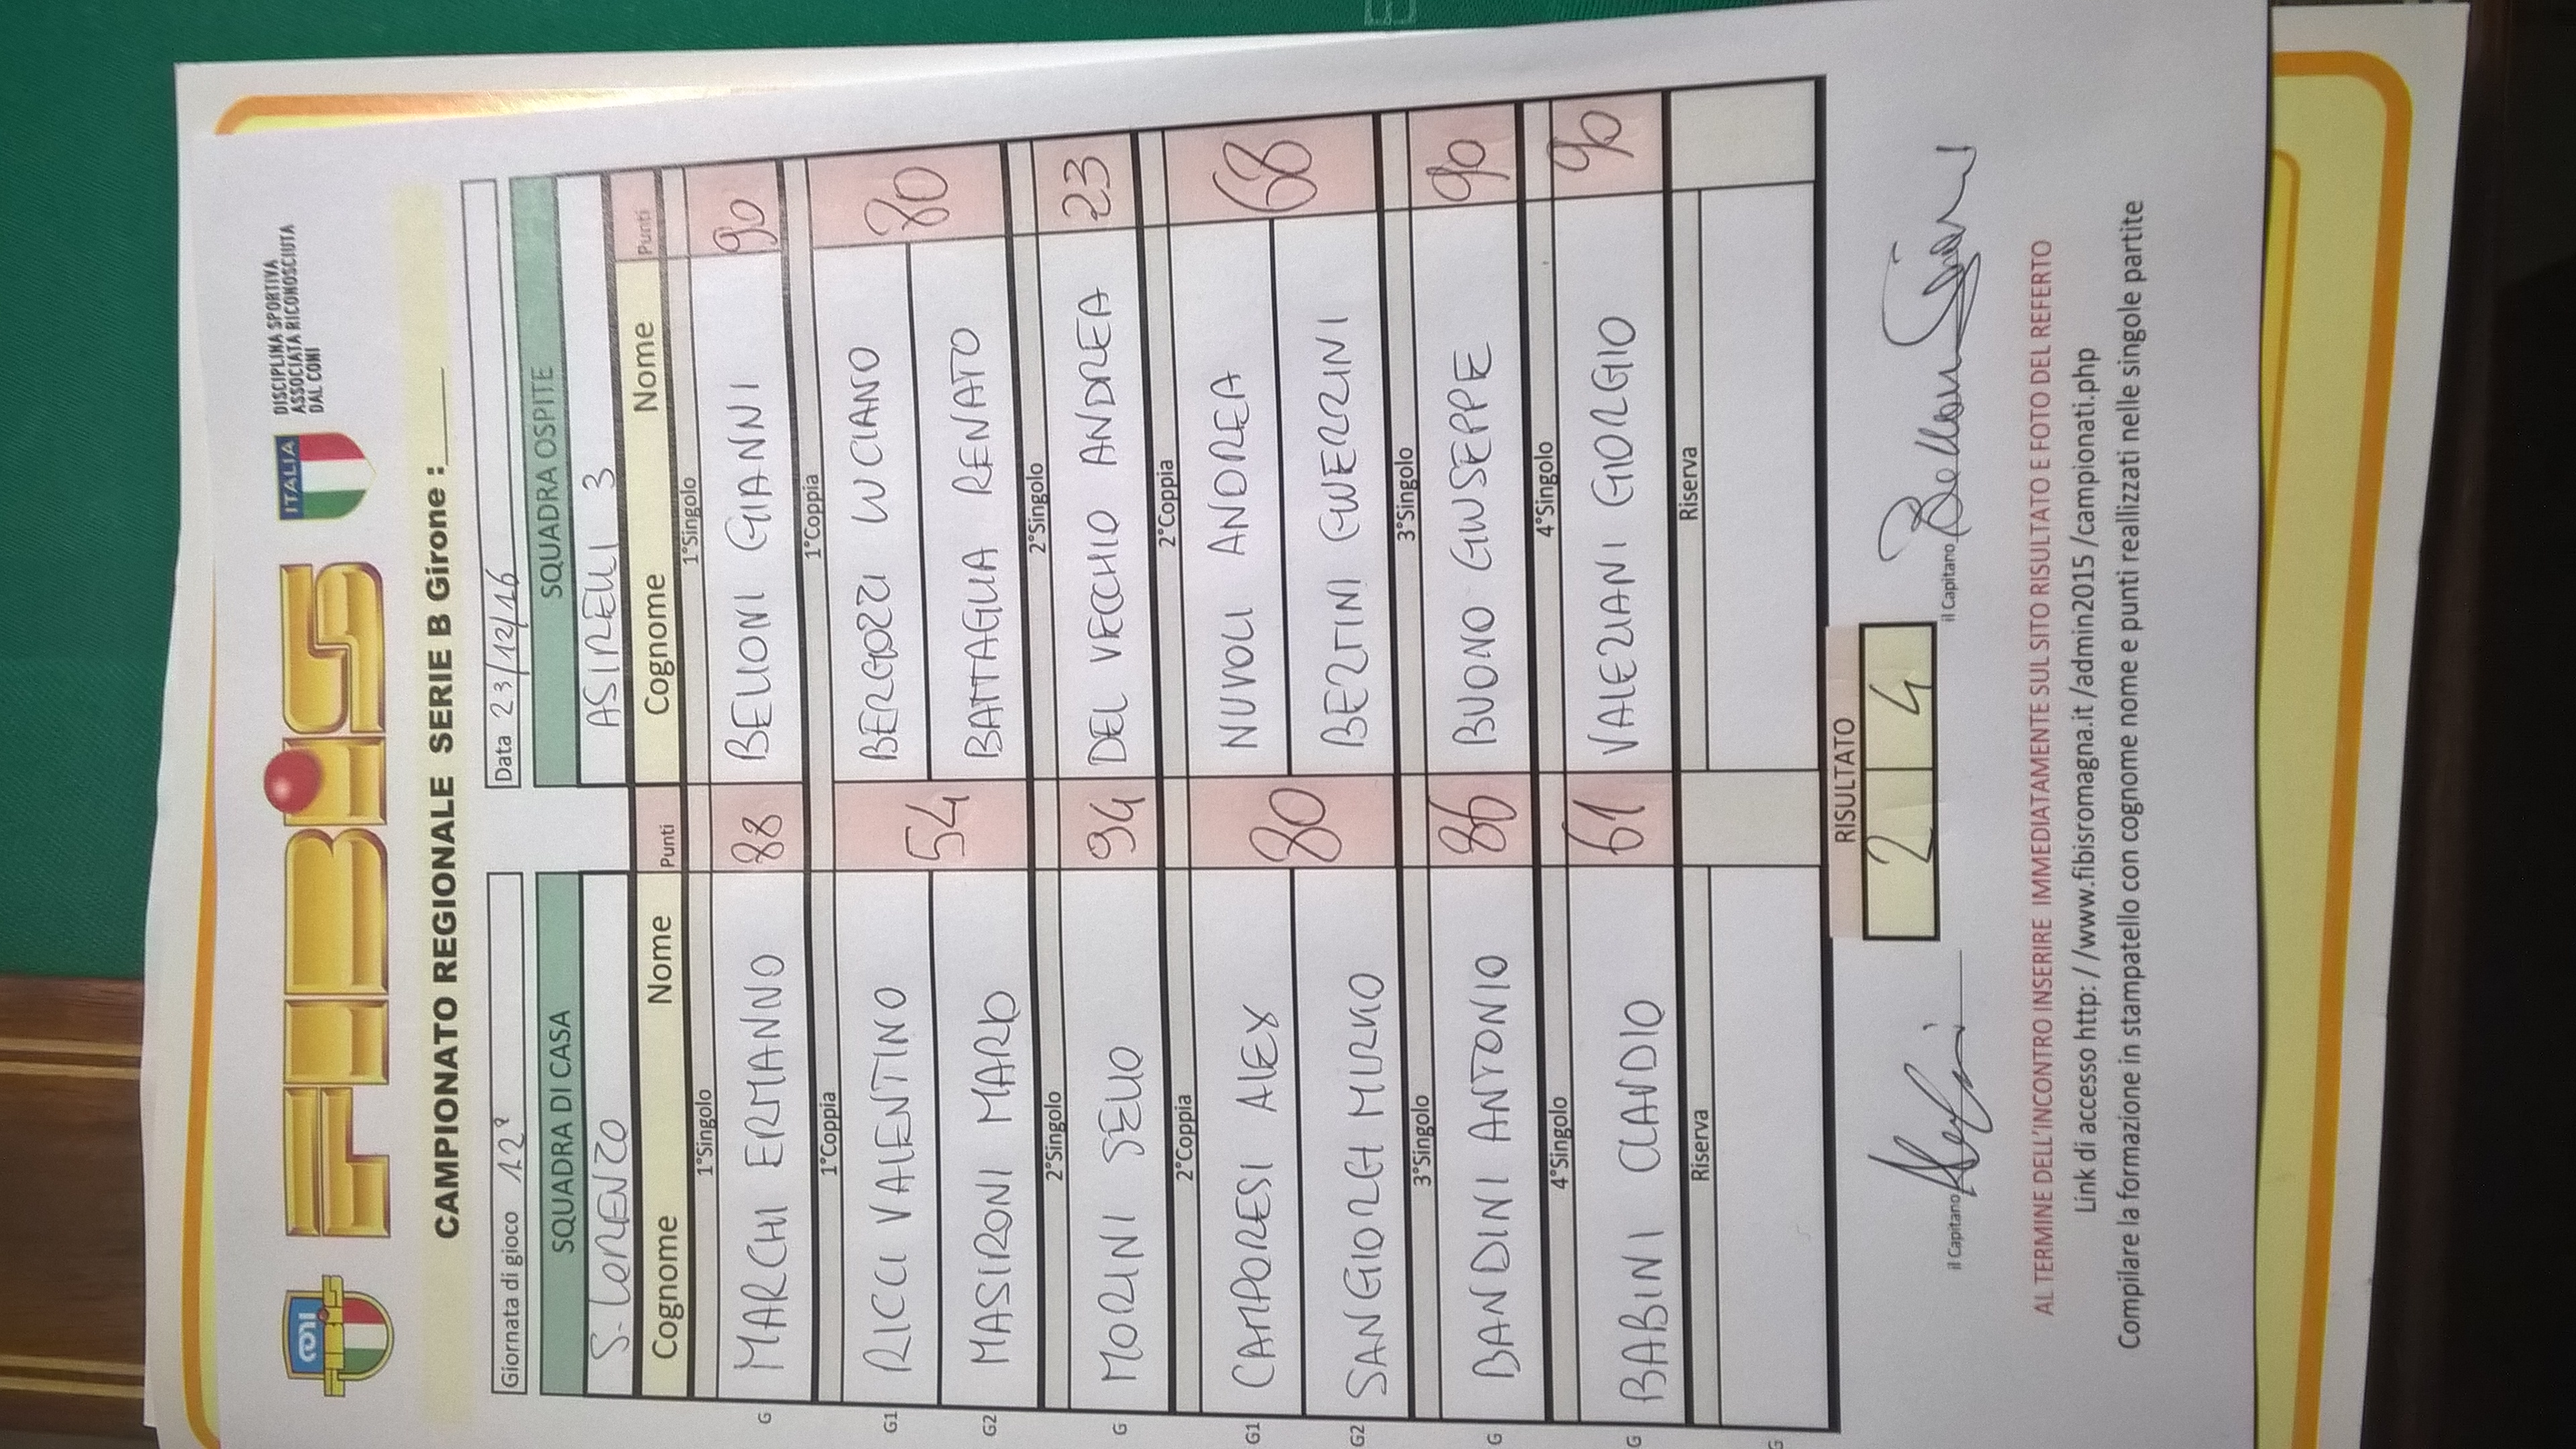 CONI FIBiS
FIBiS
ITALIA
DISCIPLINA SPORTIVA
ASSOCIATA RICONOSCIUTA
DAL CONI
CAMPIONATO REGIONALE SERIE B Girone :____
Giornata di gioco 12ª Data 23/12/16
SQUADRA DI CASA SQUADRA OSPITE
S. LORENZO ASINELLI 3
Cognome Nome Punti Cognome Nome Punti
1°Singolo 1°Singolo
G MARCHI ERMANNO 88 BELLONI GIANNI 90
1°Coppia 1°Coppia
G1 RICCI VALENTINO 54 BERGOZZI LUCIANO 80
G2 MASIRONI MARIO BATTAGLIA RENATO
2°Singolo 2°Singolo
G MORINI SELIO 94 DEL VECCHIO ANDREA 23
2°Coppia 2°Coppia
G1 CAMPORESI ALEX 80 NUVOLI ANDREA 68
G2 SANGIORGI MIRKO BERTINI GUERRINI
3°Singolo 3°Singolo
G BANDINI ANTONIO 86 BUONO GIUSEPPE 90
4°Singolo 4°Singolo
G BABINI CLAUDIO 61 VALERIANI GIORGIO 90
Riserva Riserva
G
RISULTATO
2 4
il Capitano il Capitano
AL TERMINE DELL'INCONTRO INSERIRE IMMEDIATAMENTE SUL SITO RISULTATO E FOTO DEL REFERTO
Link di accesso http: / /www.fibisromagna.it /admin2015 /campionati.php
Compilare la formazione in stampatello con cognome nome e punti reallizzati nelle singole partite